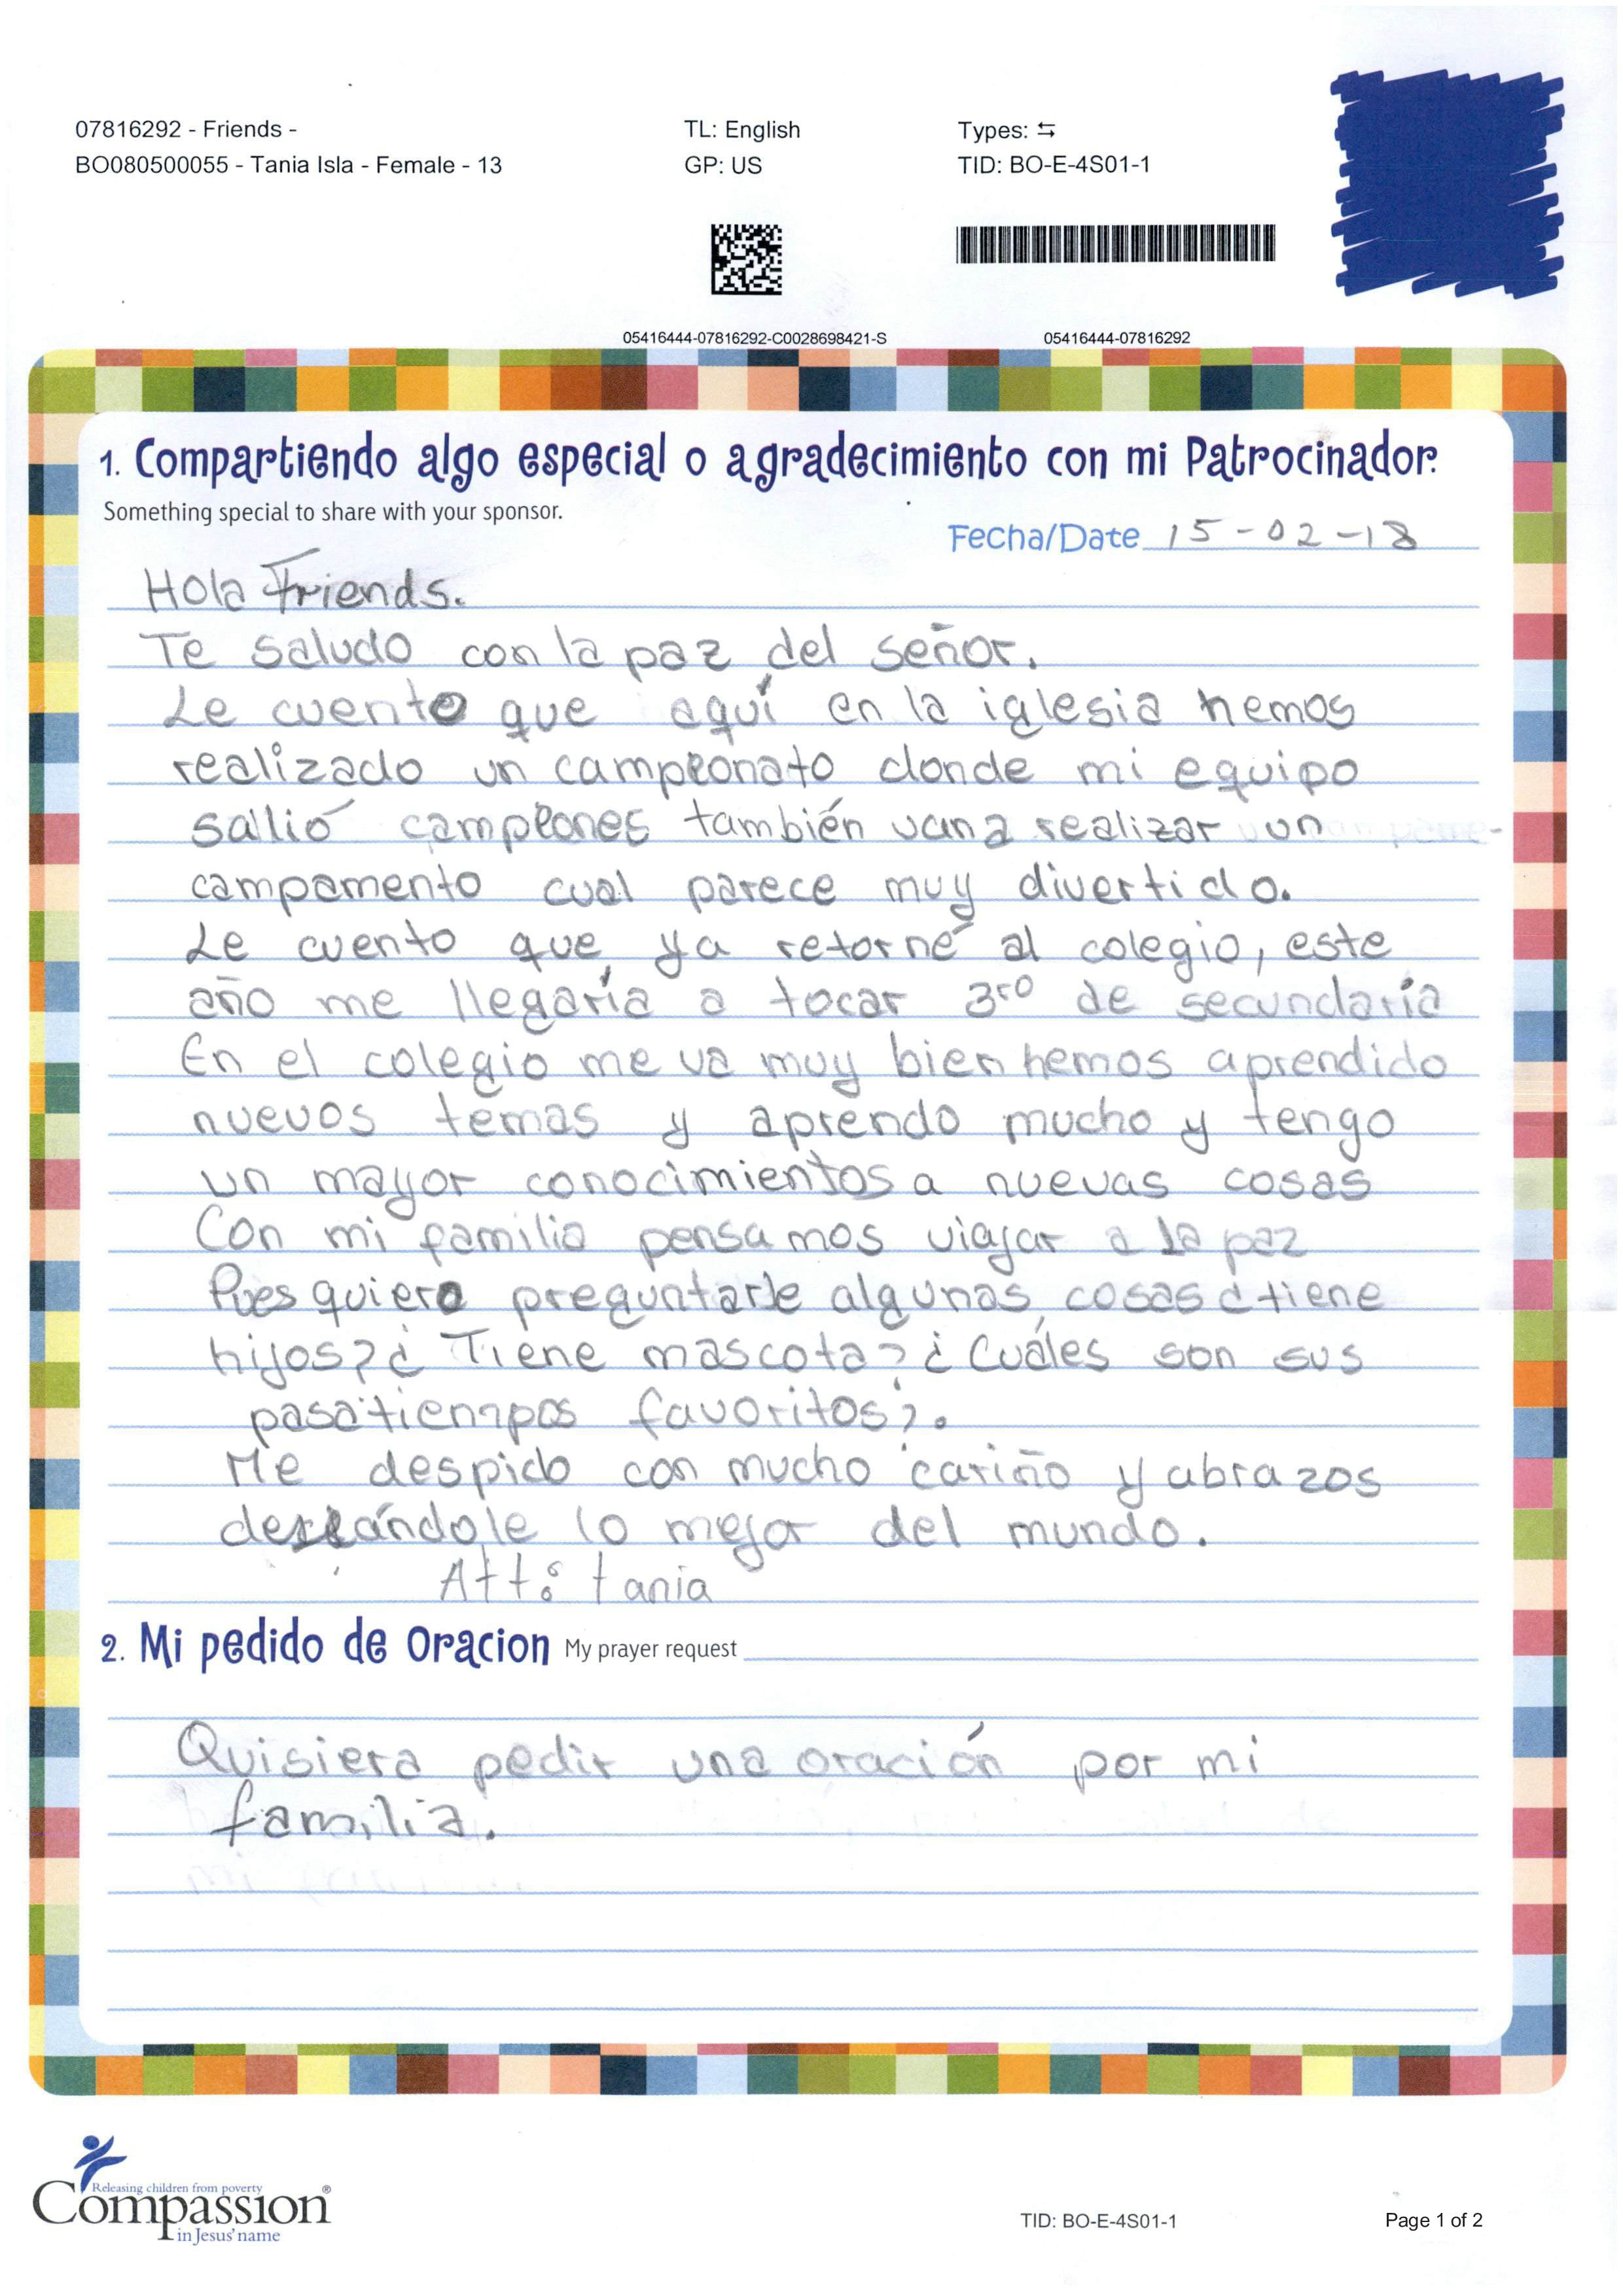 07816292 - Friends -
BO080500055 - Tania Isla - Female - 13
TL: English
GP: US
Types: ⇆
TID: BO-E-4S01-1
05416444-07816292-C0028698421-S
05416444-07816292
1. Compartiendo algo especial o agradecimiento con mi Patrocinador.
Something special to share with your sponsor.
Fecha/Date 15-02-18
Hola Friends.
Te saludo con la paz del señor.
Le cuento que aquí en la iglesia hemos
realizado un campeonato donde mi equipo
salió campeones también van a realizar un
campamento cual parece muy divertido.
Le cuento que ya retorné al colegio, este
año me llegaría a tocar 3ro de secundaria
En el colegio me va muy bien hemos aprendido
nuevos temas y aprendo mucho y tengo
un mayor conocimientos a nuevas cosas
Con mi familia pensamos viajar a la paz
Pues quiero preguntarle algunas cosas ¿tiene
hijos? ¿Tiene mascota? ¿Cuáles son sus
pasatiempos favoritos?.
Me despido con mucho cariño y abrazos
deseándole lo mejor del mundo.
Att: tania
2. Mi pedido de Oracion My prayer request
Quisiera pedir una oración por mi
familia.
Releasing children from poverty
Compassion®
in Jesus' name
TID: BO-E-4S01-1
Page 1 of 2